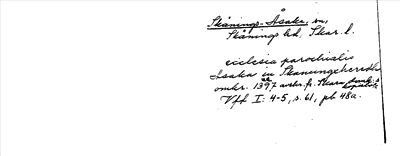 Skånings-Åsaka, sn,
Skånings hd, Skar. l.
ecclesia parochialis
Asaka in Skanungxhæredh
omkr. 1397 avskr. fr. Skara
Vft I: 4-5, s. 61, pb 48a.